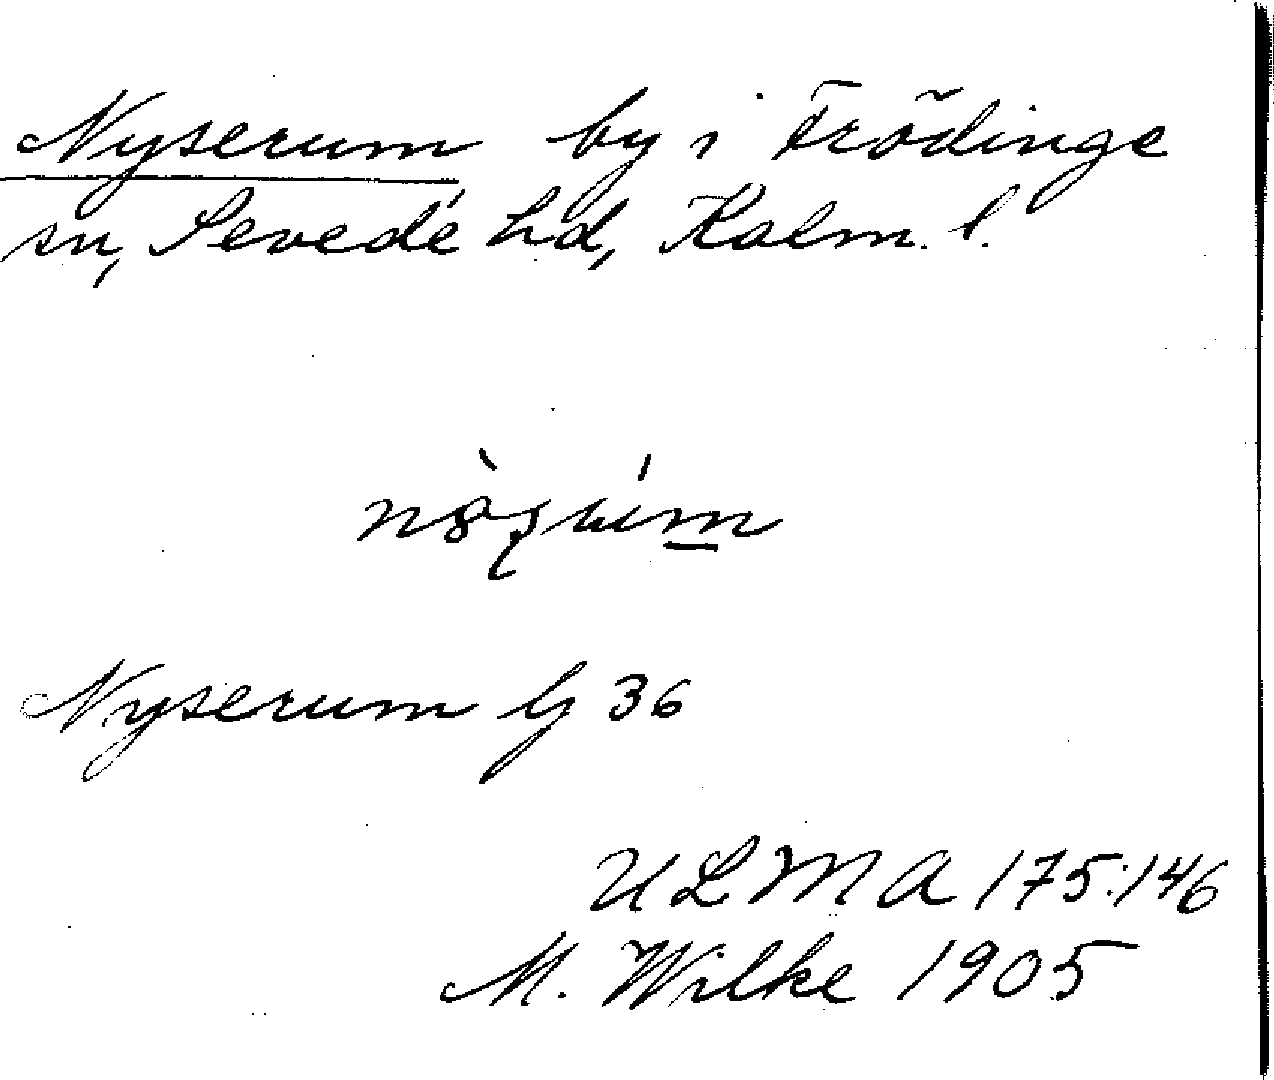 Nyserum by i Frödinge
sn, Sevede hd, Kalm. l.
Nyserum G 36
ULMA 175:146
M. Wilke 1905